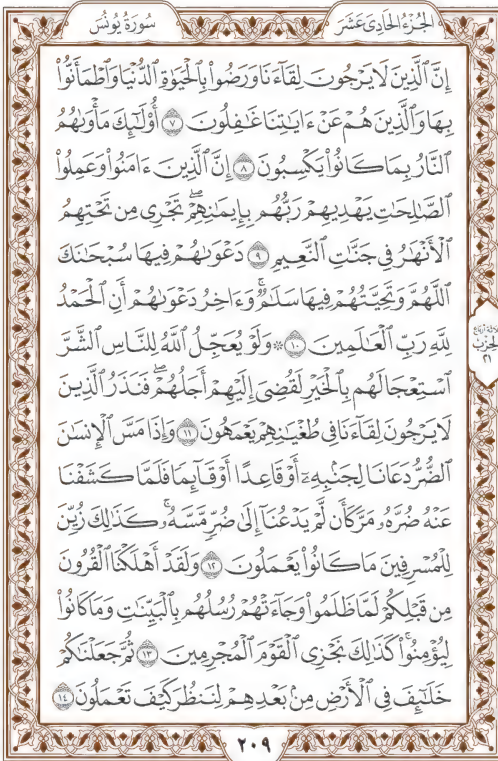 الجزء الحادي عشر
سورة يونس
إِنَّ ٱلَّذِينَ لَا يَرۡجُونَ لِقَآءَنَا وَرَضُواْ بِٱلۡحَيَوٰةِ ٱلدُّنۡيَا وَٱطۡمَأَنُّواْ
بِهَا وَٱلَّذِينَ هُمۡ عَنۡ ءَايَٰتِنَا غَٰفِلُونَ ٧ أُوْلَٰٓئِكَ مَأۡوَىٰهُمُ
ٱلنَّارُ بِمَا كَانُواْ يَكۡسِبُونَ ٨ إِنَّ ٱلَّذِينَ ءَامَنُواْ وَعَمِلُواْ
ٱلصَّٰلِحَٰتِ يَهۡدِيهِمۡ رَبُّهُم بِإِيمَٰنِهِمۡۖ تَجۡرِي مِن تَحۡتِهِمُ
ٱلۡأَنۡهَٰرُ فِي جَنَّٰتِ ٱلنَّعِيمِ ٩ دَعۡوَىٰهُمۡ فِيهَا سُبۡحَٰنَكَ
ٱللَّهُمَّ وَتَحِيَّتُهُمۡ فِيهَا سَلَٰمٞۚ وَءَاخِرُ دَعۡوَىٰهُمۡ أَنِ ٱلۡحَمۡدُ
لِلَّهِ رَبِّ ٱلۡعَٰلَمِينَ ١٠ ۞ وَلَوۡ يُعَجِّلُ ٱللَّهُ لِلنَّاسِ ٱلشَّرَّ
ٱسۡتِعۡجَالَهُم بِٱلۡخَيۡرِ لَقُضِيَ إِلَيۡهِمۡ أَجَلُهُمۡۖ فَنَذَرُ ٱلَّذِينَ
لَا يَرۡجُونَ لِقَآءَنَا فِي طُغۡيَٰنِهِمۡ يَعۡمَهُونَ ١١ وَإِذَا مَسَّ ٱلۡإِنسَٰنَ
ٱلضُّرُّ دَعَانَا لِجَنۢبِهِۦٓ أَوۡ قَاعِدًا أَوۡ قَآئِمٗا فَلَمَّا كَشَفۡنَا
عَنۡهُ ضُرَّهُۥ مَرَّ كَأَن لَّمۡ يَدۡعُنَآ إِلَىٰ ضُرّٖ مَّسَّهُۥۚ كَذَٰلِكَ زُيِّنَ
لِلۡمُسۡرِفِينَ مَا كَانُواْ يَعۡمَلُونَ ١٢ وَلَقَدۡ أَهۡلَكۡنَا ٱلۡقُرُونَ
مِن قَبۡلِكُمۡ لَمَّا ظَلَمُواْ وَجَآءَتۡهُمۡ رُسُلُهُم بِٱلۡبَيِّنَٰتِ وَمَا كَانُواْ
لِيُؤۡمِنُواْۚ كَذَٰلِكَ نَجۡزِي ٱلۡقَوۡمَ ٱلۡمُجۡرِمِينَ ١٣ ثُمَّ جَعَلۡنَٰكُمۡ
خَلَٰٓئِفَ فِي ٱلۡأَرۡضِ مِنۢ بَعۡدِهِمۡ لِنَنظُرَ كَيۡفَ تَعۡمَلُونَ ١٤
ثلاثة أرباع
الحزب
٢١
٢٠٩